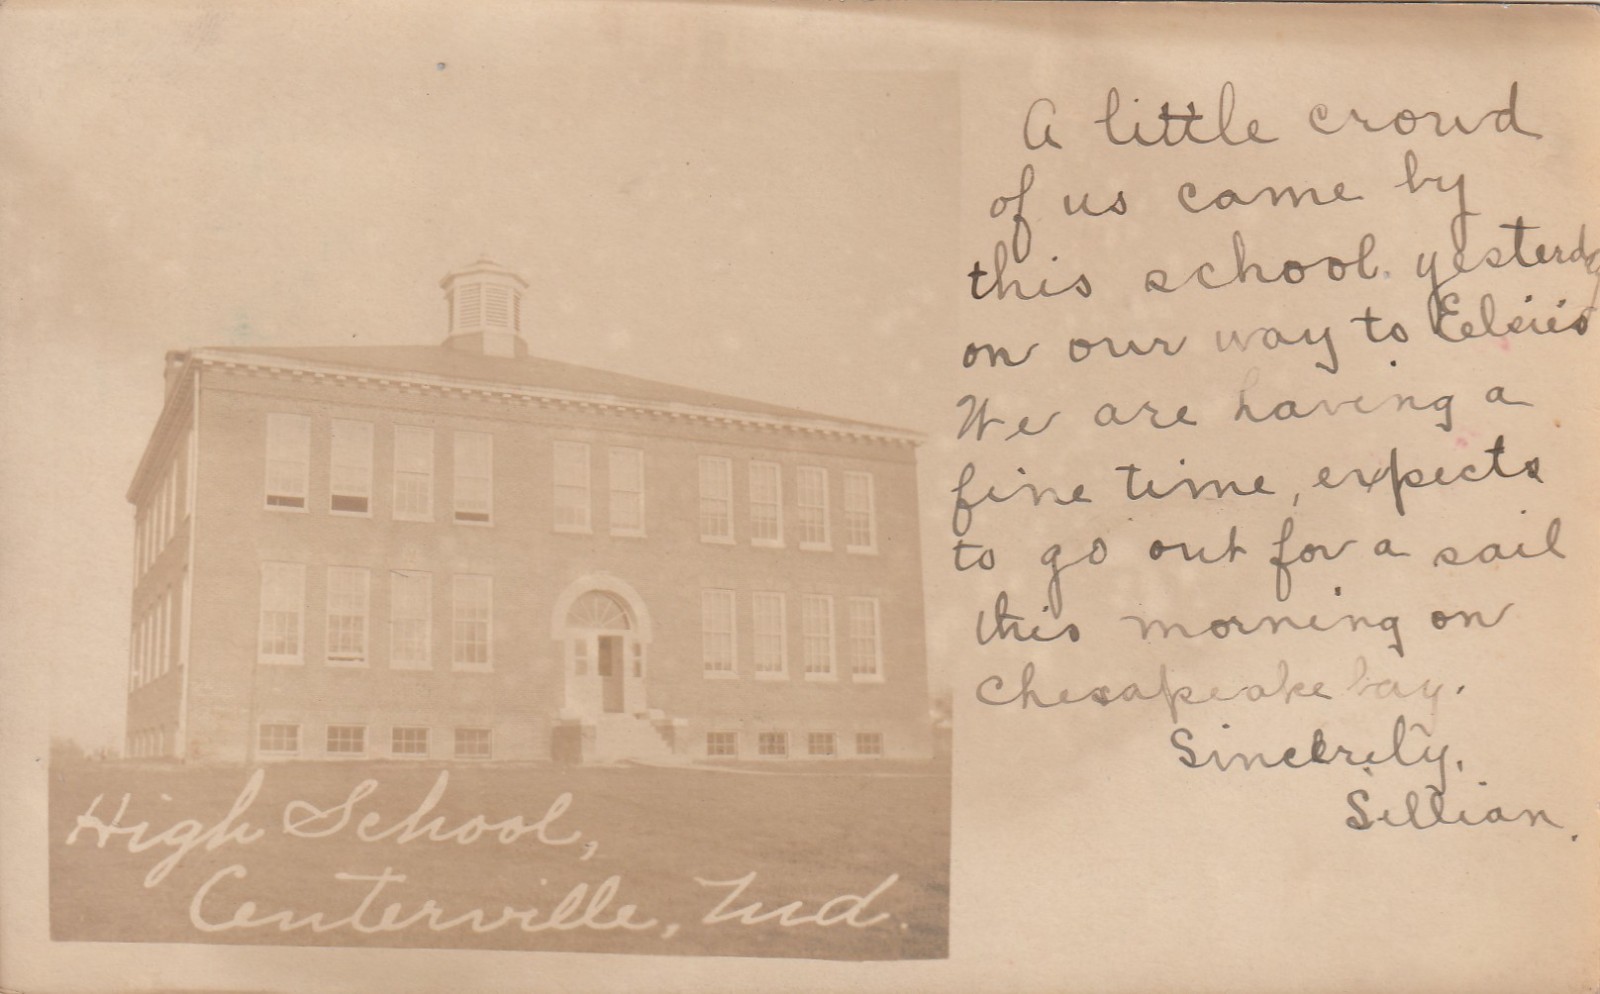 High School,
Centerville, Md.
A little crowd
of us came by
this school yesterday
on our way to
We are having a
fine time, expects
to go out for a sail
this morning on
Chesapeake bay.
Sincerely,
Lillian.